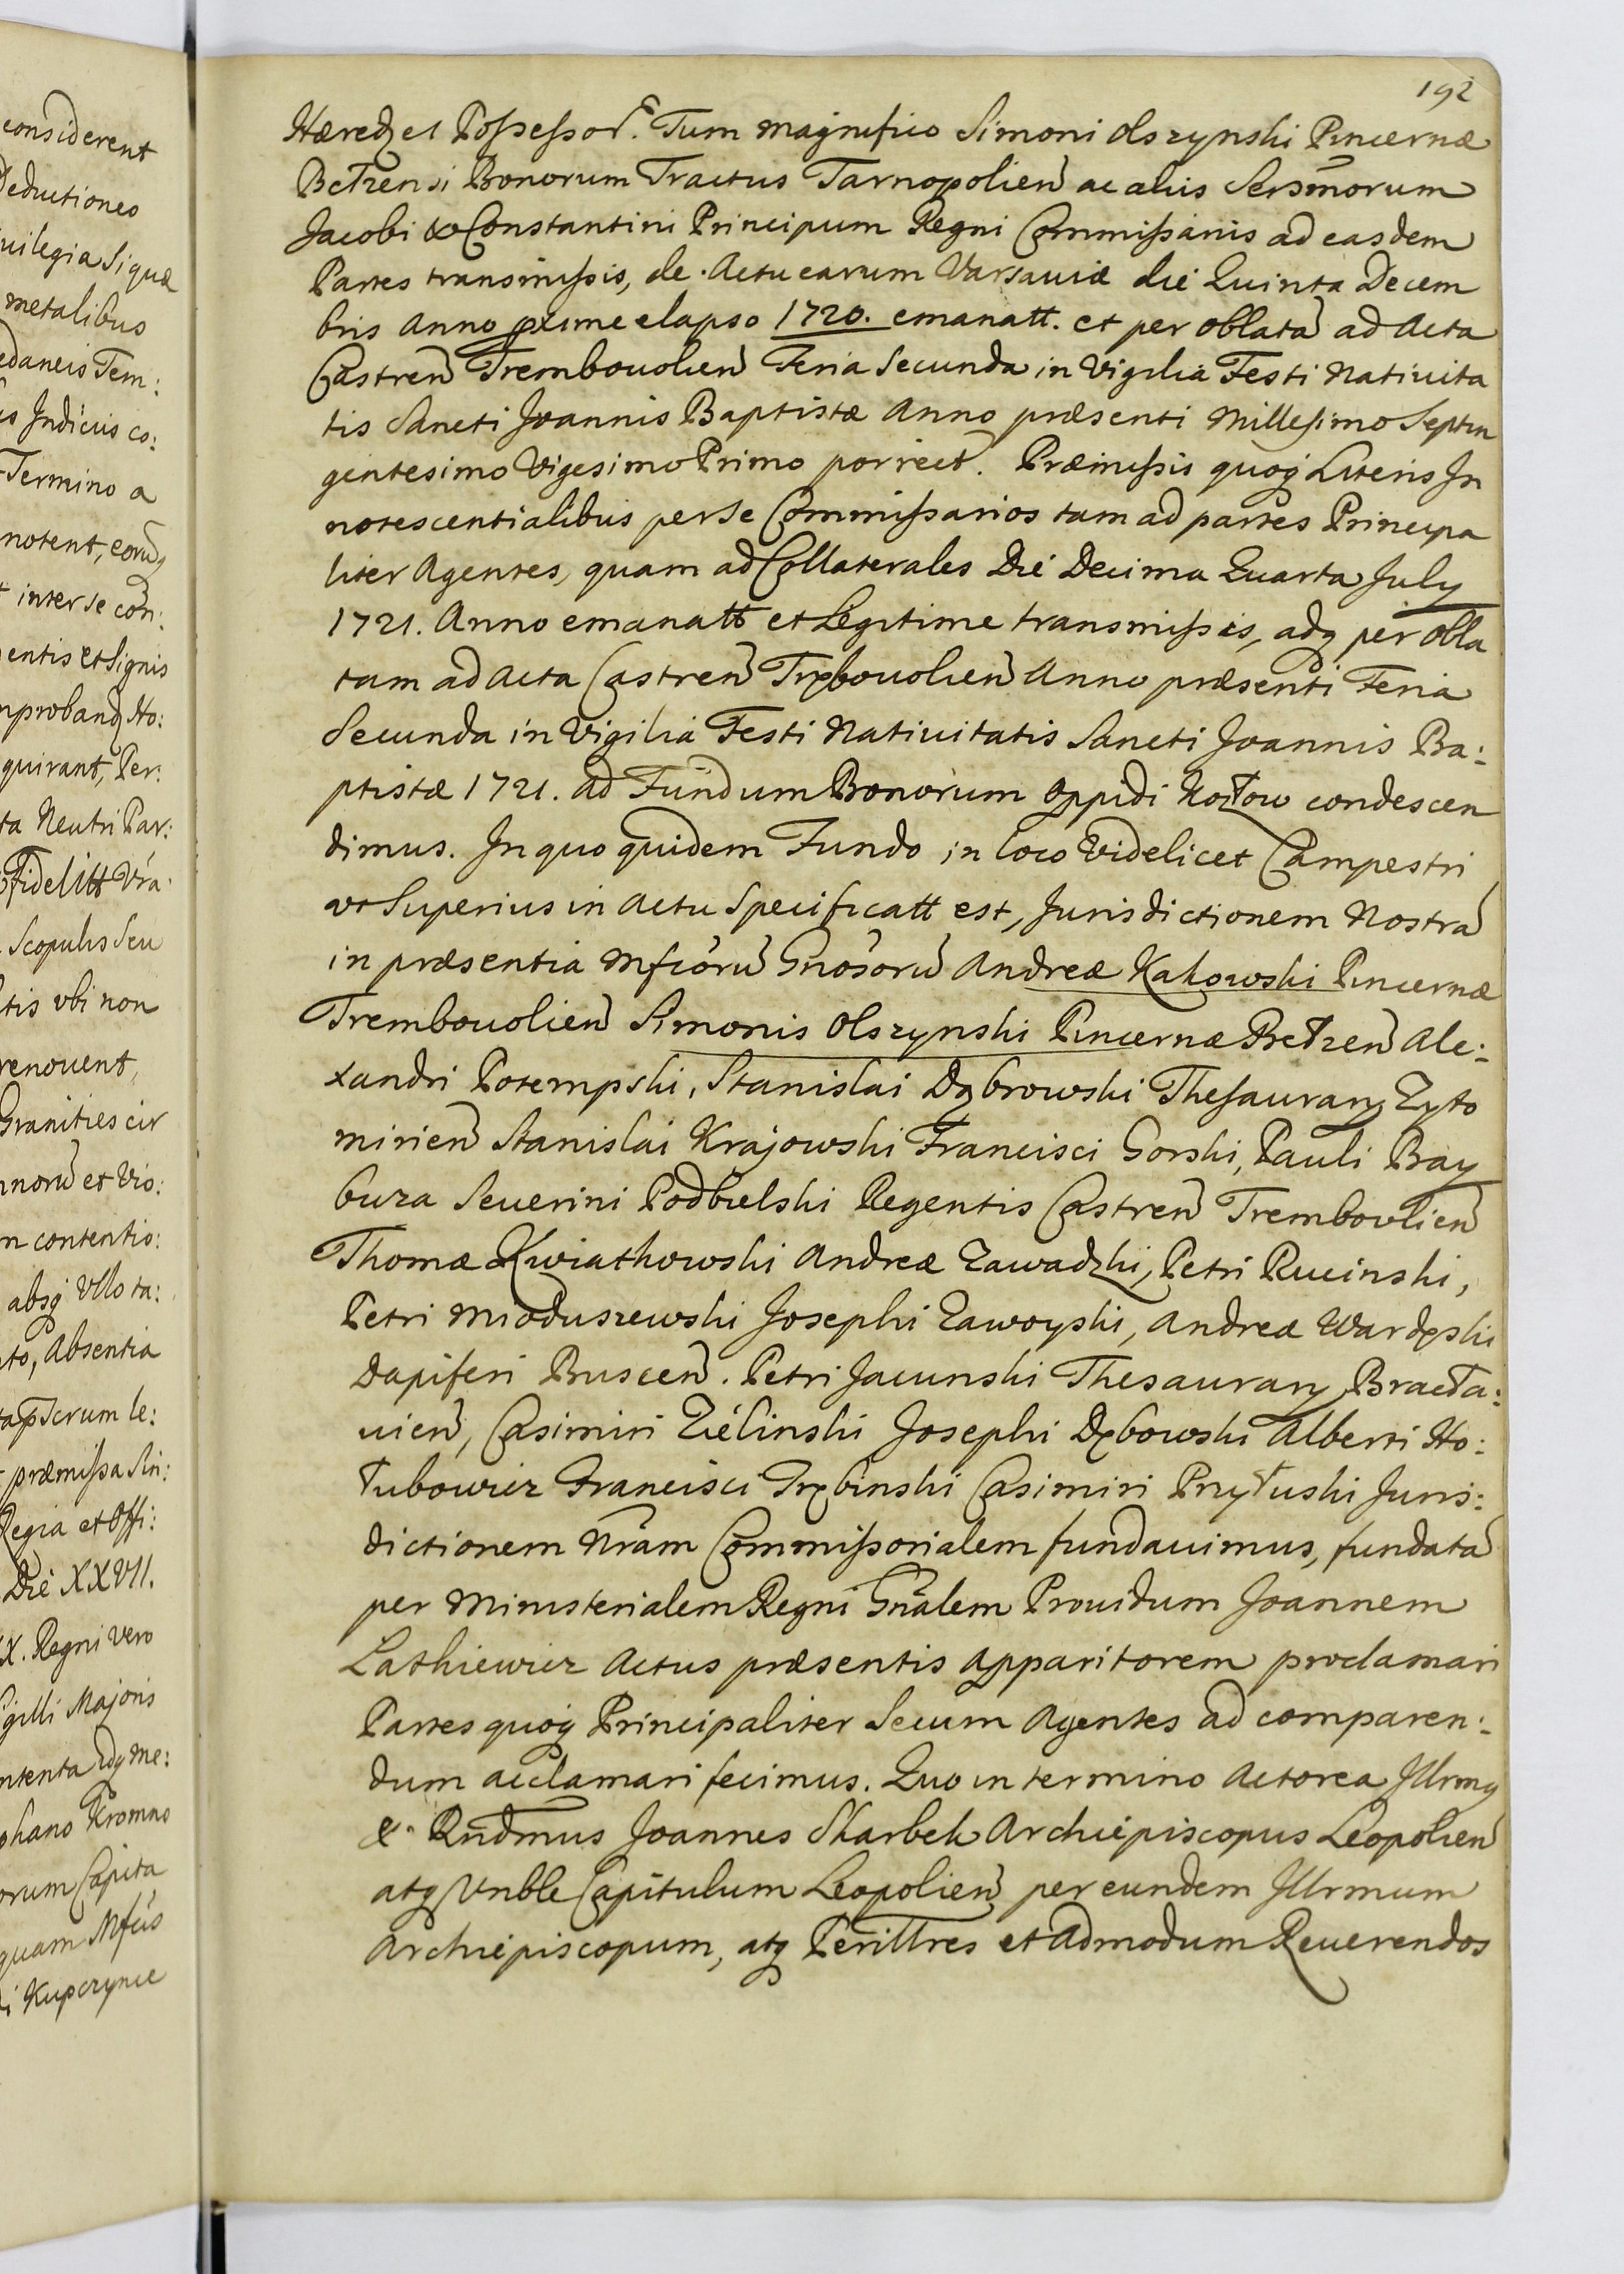 considerent
Deductiones
uilegia Siquæ
metalibus
edaneis Tem:
s Judiciis co:
Termino a
notent, eorūq
inter se con:
entis et Signis
nprobandɜ Ho:
quirant, Per:
ta Neutri Par:
Fidelitt Vrã
Scopulis Seu
tis vbi non
renouent,
Granities cir
norū et Vio:
m contentio:
absq Vllo ta:
to, Absentia
le:
præmissa Sin:
Regia et Offi:
Die XXVII.
X. Regni Vero
Sigilli Majoris
ntenta adq me:
phano Kromno
orum Capita
quam Mfcus
Kupczynce
192
Hæredɜ et Possessor. Tum Magnifico Simoni Olszynski Pincernæ
Bełzensi Bonorum Tractus Tarnopolien̄ ac aliis Sersm̄orum
Jacobi & Constantini Principum Regni Commissariis ad easdem
Partes transmissis, de Actu earum Varsauiæ die Quinta Decem
bris Anno proxime elapso 1720. emanatt. et per oblatā ad Acta
Castren̄ Trembouolien̄ Feria Secunda in Vigilia Festi Natiuita
tis Sancti Joannis Baptistæ Anno præsenti Millesimo Septin
gentesimo Vigesimo Primo porrect. Præmissis quoq Literis In
notescentialibus per se Commissarios tam ad partes Principa
liter Agentes, quam ad Collaterales Die Decima Quarta July
1721. Anno emanatt et Legitime transmissis, adq per obla
tam ad Acta Castren̄ Trębouolien̄ Anno præsenti Feria
Secunda in Vigilia Festi Natiuitatis Sancti Joannis Ba:
ptistæ 1721. ad Fundum Bonorum Oppidi Kozłow condescen
dimus. In quo quidem Fundo in loco Videlicet Campestri
vt Superius in Actu Specificatt est, Jurisdictionem Nostrā
in præsentia Mfcorū Gnosorū Andreæ Kakowski Pincernæ
Trembouolien̄ Simonis Olszynski Pincernæ Bełzen̄ Ale:
xandri Potempski, Stanislai Dąbrowski Thesaurary Zyto
mirien̄ Stanislai Krajowski Francisci Gorski, Pauli Bay
buza Seuerini Podbielski Regentis Castren̄ Trembovlien̄
Thomæ Kwiatkowski Andreæ Zawadzki, Petri Rucinski,
Petri Mioduszewski Josephi Zawoyski, Andreæ Wardęski
Dapiferi Buscen̄. Petri Jacunski Thesaurary Bracła:
uien̄, Casimiri Zielinski Josephi Dębowski Alberti Ho:
łubowicz Francisci Trębinski Casimiri Przyłuski Juris:
dictionem Nr̄am Commissorialem fundauimus, fundatā
per Ministerialem Regni Gn̄alem Prouidum Joannem
Lathiewicz Actus præsentis Apparitorem proclamari
Partes quoq Principaliter Secum Agentes ad comparen:
dum acclamari fecimus. Quo in termino Actorea Illrmq
& Rndmus Joannes Skarbek Archiepiscopus Leopolien̄
atq Vnble Capitulum Leopolien̄ per eundem Illrmum
Archiepiscopum, atq Perillres et Admodum Reuerendos